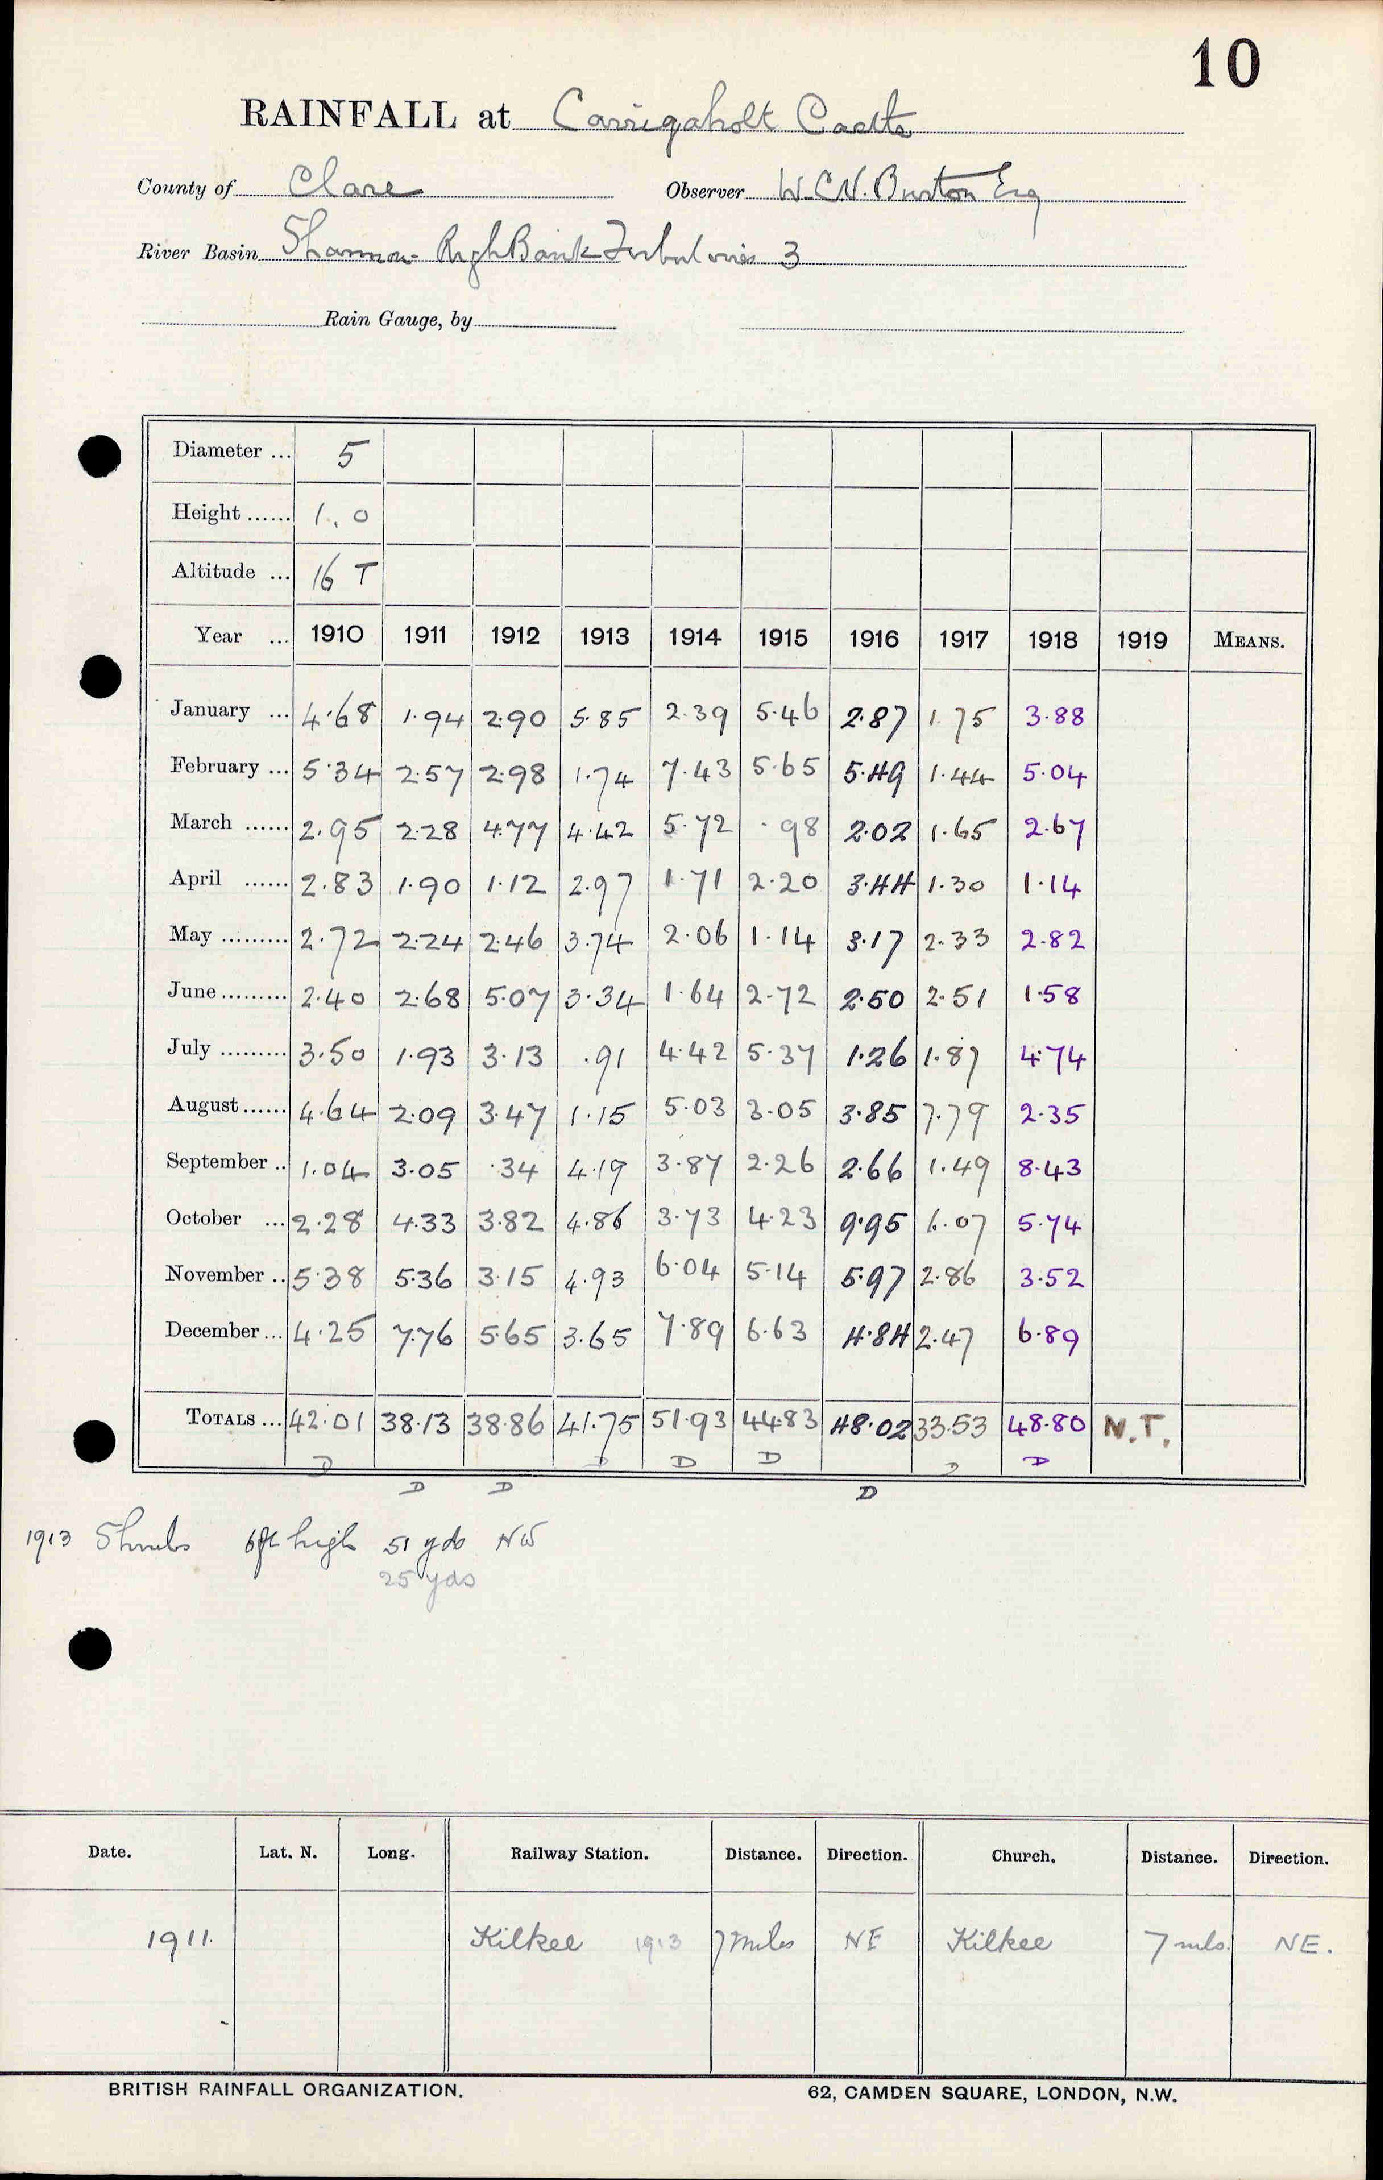 10
RAINFALL at Carrigaholt Castle
County of Clare Observer W.C.N. Burton Esq
River Basin Shannon Bank 3
Rain Gauge, by
Diameter ... 5
Height ...... 1.0
Altitude ... 16 T
Year ... 1910 1911 1912 1913 1914 1915 1916 1917 1918 1919 MEANS.
January ... 4.68 1.94 2.90 5.85 2.39 5.46 2.87 1.75 3.88
February ... 5.34 2.57 2.98 1.74 7.43 5.65 5.49 1.44 5.04
March ...... 2.95 2.28 4.77 4.42 5.72 .98 2.02 1.65 2.67
April ...... 2.83 1.90 1.12 2.97 1.71 2.20 3.44 1.30 1.14
May ......... 2.72 2.24 2.46 3.74 2.06 1.14 3.17 2.33 2.82
June ......... 2.40 2.68 5.07 3.34 1.64 2.72 2.50 2.51 1.58
July ......... 3.50 1.93 3.13 .91 4.42 5.37 1.26 1.87 4.74
August ...... 4.64 2.09 3.47 1.15 5.03 3.05 3.85 7.79 2.35
September .. 1.04 3.05 .34 4.19 3.87 2.26 2.66 1.49 8.43
October ... 2.28 4.33 3.82 4.86 3.73 4.23 9.95 6.07 5.74
November .. 5.38 5.36 3.15 4.93 6.04 5.14 5.97 2.86 3.52
December ... 4.25 7.76 5.65 3.65 7.89 6.63 4.84 2.47 6.89
TOTALS ... 42.01 38.13 38.86 41.75 51.93 44.83 48.02 33.53 48.80 N.T.
D D D D D D D D D
1913 Shrubs 6ft high 51 yds NW
25 yds
Date. Lat. N. Long. Railway Station. Distance. Direction. Church. Distance. Direction.
1911. Kilkee 1913 7 miles NE Kilkee 7 mls. NE.
BRITISH RAINFALL ORGANIZATION. 62, CAMDEN SQUARE, LONDON, N.W.